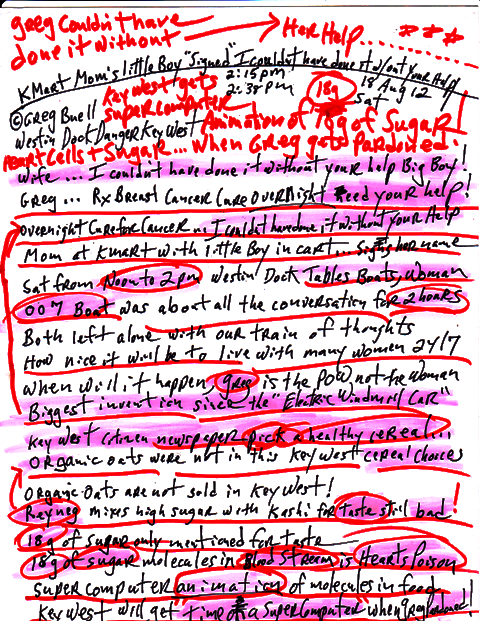 greg Couldn't have
done it without → Her Help......***
KMart Mom's little Boy "Signed" I couldn't have done it w/out Your Help
Key West gets
super computer
2:15pm
2:38pm
18g
18 Aug 12
Sat
©Greg Buell
Westin Dock Danger Key West
Animation of 18g of Sugar!
Heart Cells + Sugar... when Greg gets Pardoned.
Wife... I couldn't have done it without your help Big Boy!
Greg... Rx Breast Cancer Care OverNight Need your help!
overnight Care for Cancer... I couldn't have done it without Your Help
Mom at Kmart with little Boy in cart... Signs her name
Sat from Noon to 2pm Westin Dock Tables Boats, Woman
007 Boat was about all the conversation for 2 hours
Both left alone with our train of thoughts
How nice it will be to live with many women 24/7
when will it happen, greg is the POW, not the woman
Biggest invention since the "Electric Windmill Car"
Key West citizen newspaper pick a healthy cereal...
Organic oats were not in this Key West cereal choices
Organic Oats are not sold in Key West!
mixes high sugar with Kashi for taste still bad!
18g of sugar only mentioned for taste
18g of sugar molecules in Blood Stream is Hearts Poison
Super computer animation of molecules in food
Key West will get "time of a Super Computer" when greg Pardoned!